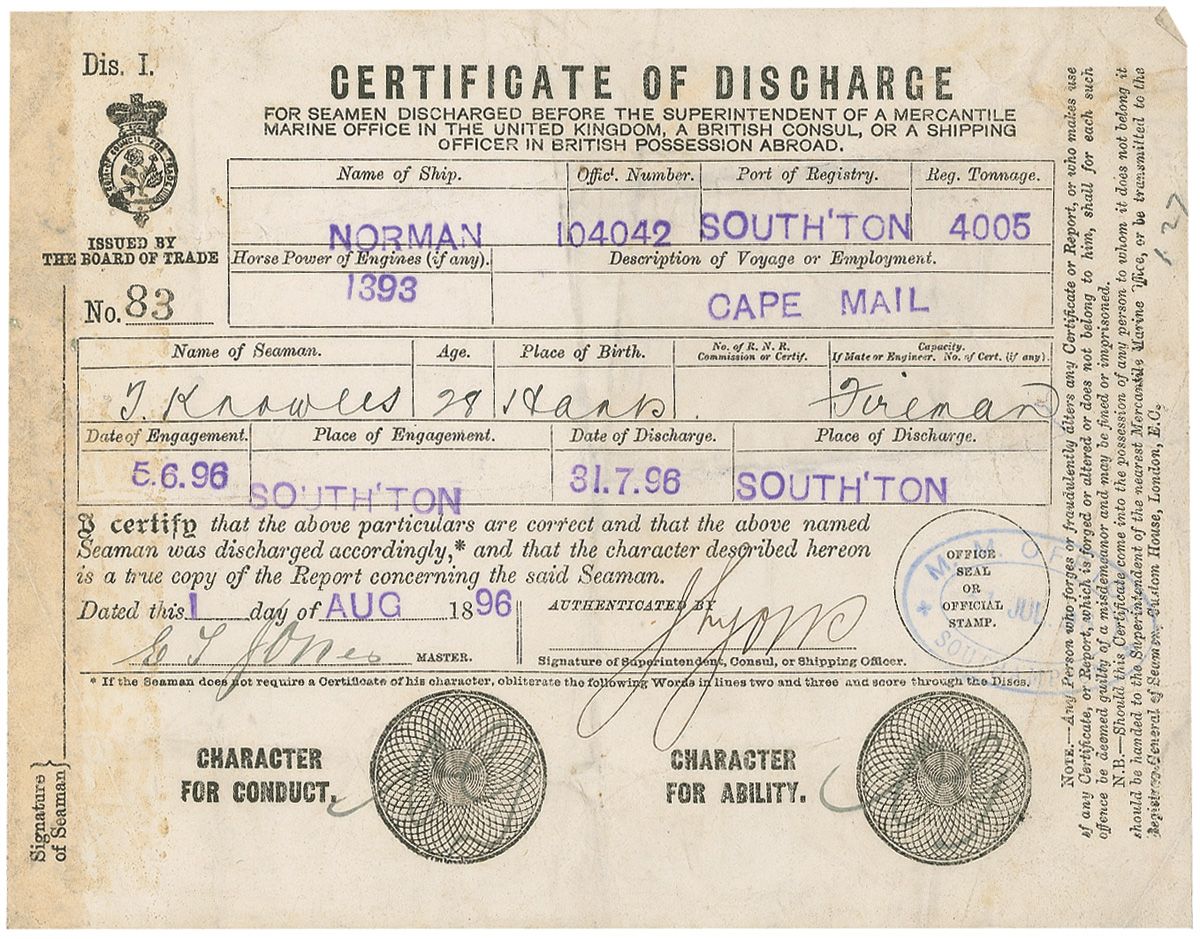 Dis. I.
CERTIFICATE OF DISCHARGE
FOR SEAMEN DISCHARGED BEFORE THE SUPERINTENDENT OF A MERCANTILE
MARINE OFFICE IN THE UNITED KINGDOM, A BRITISH CONSUL, OR A SHIPPING
OFFICER IN BRITISH POSSESSION ABROAD.
ISSUED BY
THE BOARD OF TRADE
No. 83
Name of Ship. Offic'. Number. Port of Registry. Reg. Tonnage.
NORMAN 104042 SOUTH'TON 4005
Horse Power of Engines (if any). Description of Voyage or Employment.
1393 CAPE MAIL
Name of Seaman. Age. Place of Birth. No. of R. N. R. Commission or Certif. Capacity. If Mate or Engineer. No. of Cert. (if any).
T. Knowles 28 Hants. Fireman
Date of Engagement. Place of Engagement. Date of Discharge. Place of Discharge.
5.6.96 SOUTH'TON 31.7.96 SOUTH'TON
I certify that the above particulars are correct and that the above named
Seaman was discharged accordingly,* and that the character described hereon
is a true copy of the Report concerning the said Seaman.
Dated this 1 day of AUG 1896
AUTHENTICATED BY
MASTER.
Jones
Signature of Superintendent, Consul, or Shipping Officer.
OFFICE
SEAL
OR
OFFICIAL
STAMP.
M. M. OFFICE
JUL
* If the Seaman does not require a Certificate of his character, obliterate the following Words in lines two and three and score through the Discs.
CHARACTER
FOR CONDUCT.
CHARACTER
FOR ABILITY.
Signature
of Seaman
NOTE.—Any Person who forges or fraudulently alters any Certificate or Report, or who makes use
of any Certificate, or Report, which is forged or altered or does not belong to him, shall for each such
offence be deemed guilty of a misdemeanor and may be fined or imprisoned.
N.B.—Should this Certificate come into the possession of any person to whom it does not belong it
should be handed to the Superintendent of the nearest Mercantile Marine Office, or be transmitted to the
Registrar-General of Seamen, Custom House, London, E.C.